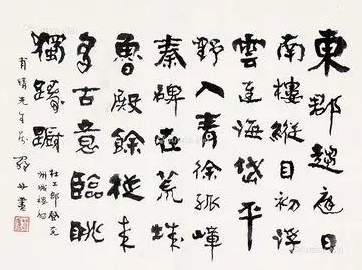 東郡趨庭日
南樓縱目初浮
雲連海岱平
野入青徐孤嶂
秦碑在荒城
魯殿餘從來
多古意臨眺
獨躊躇
杜工部登兗
州城樓
先生
書